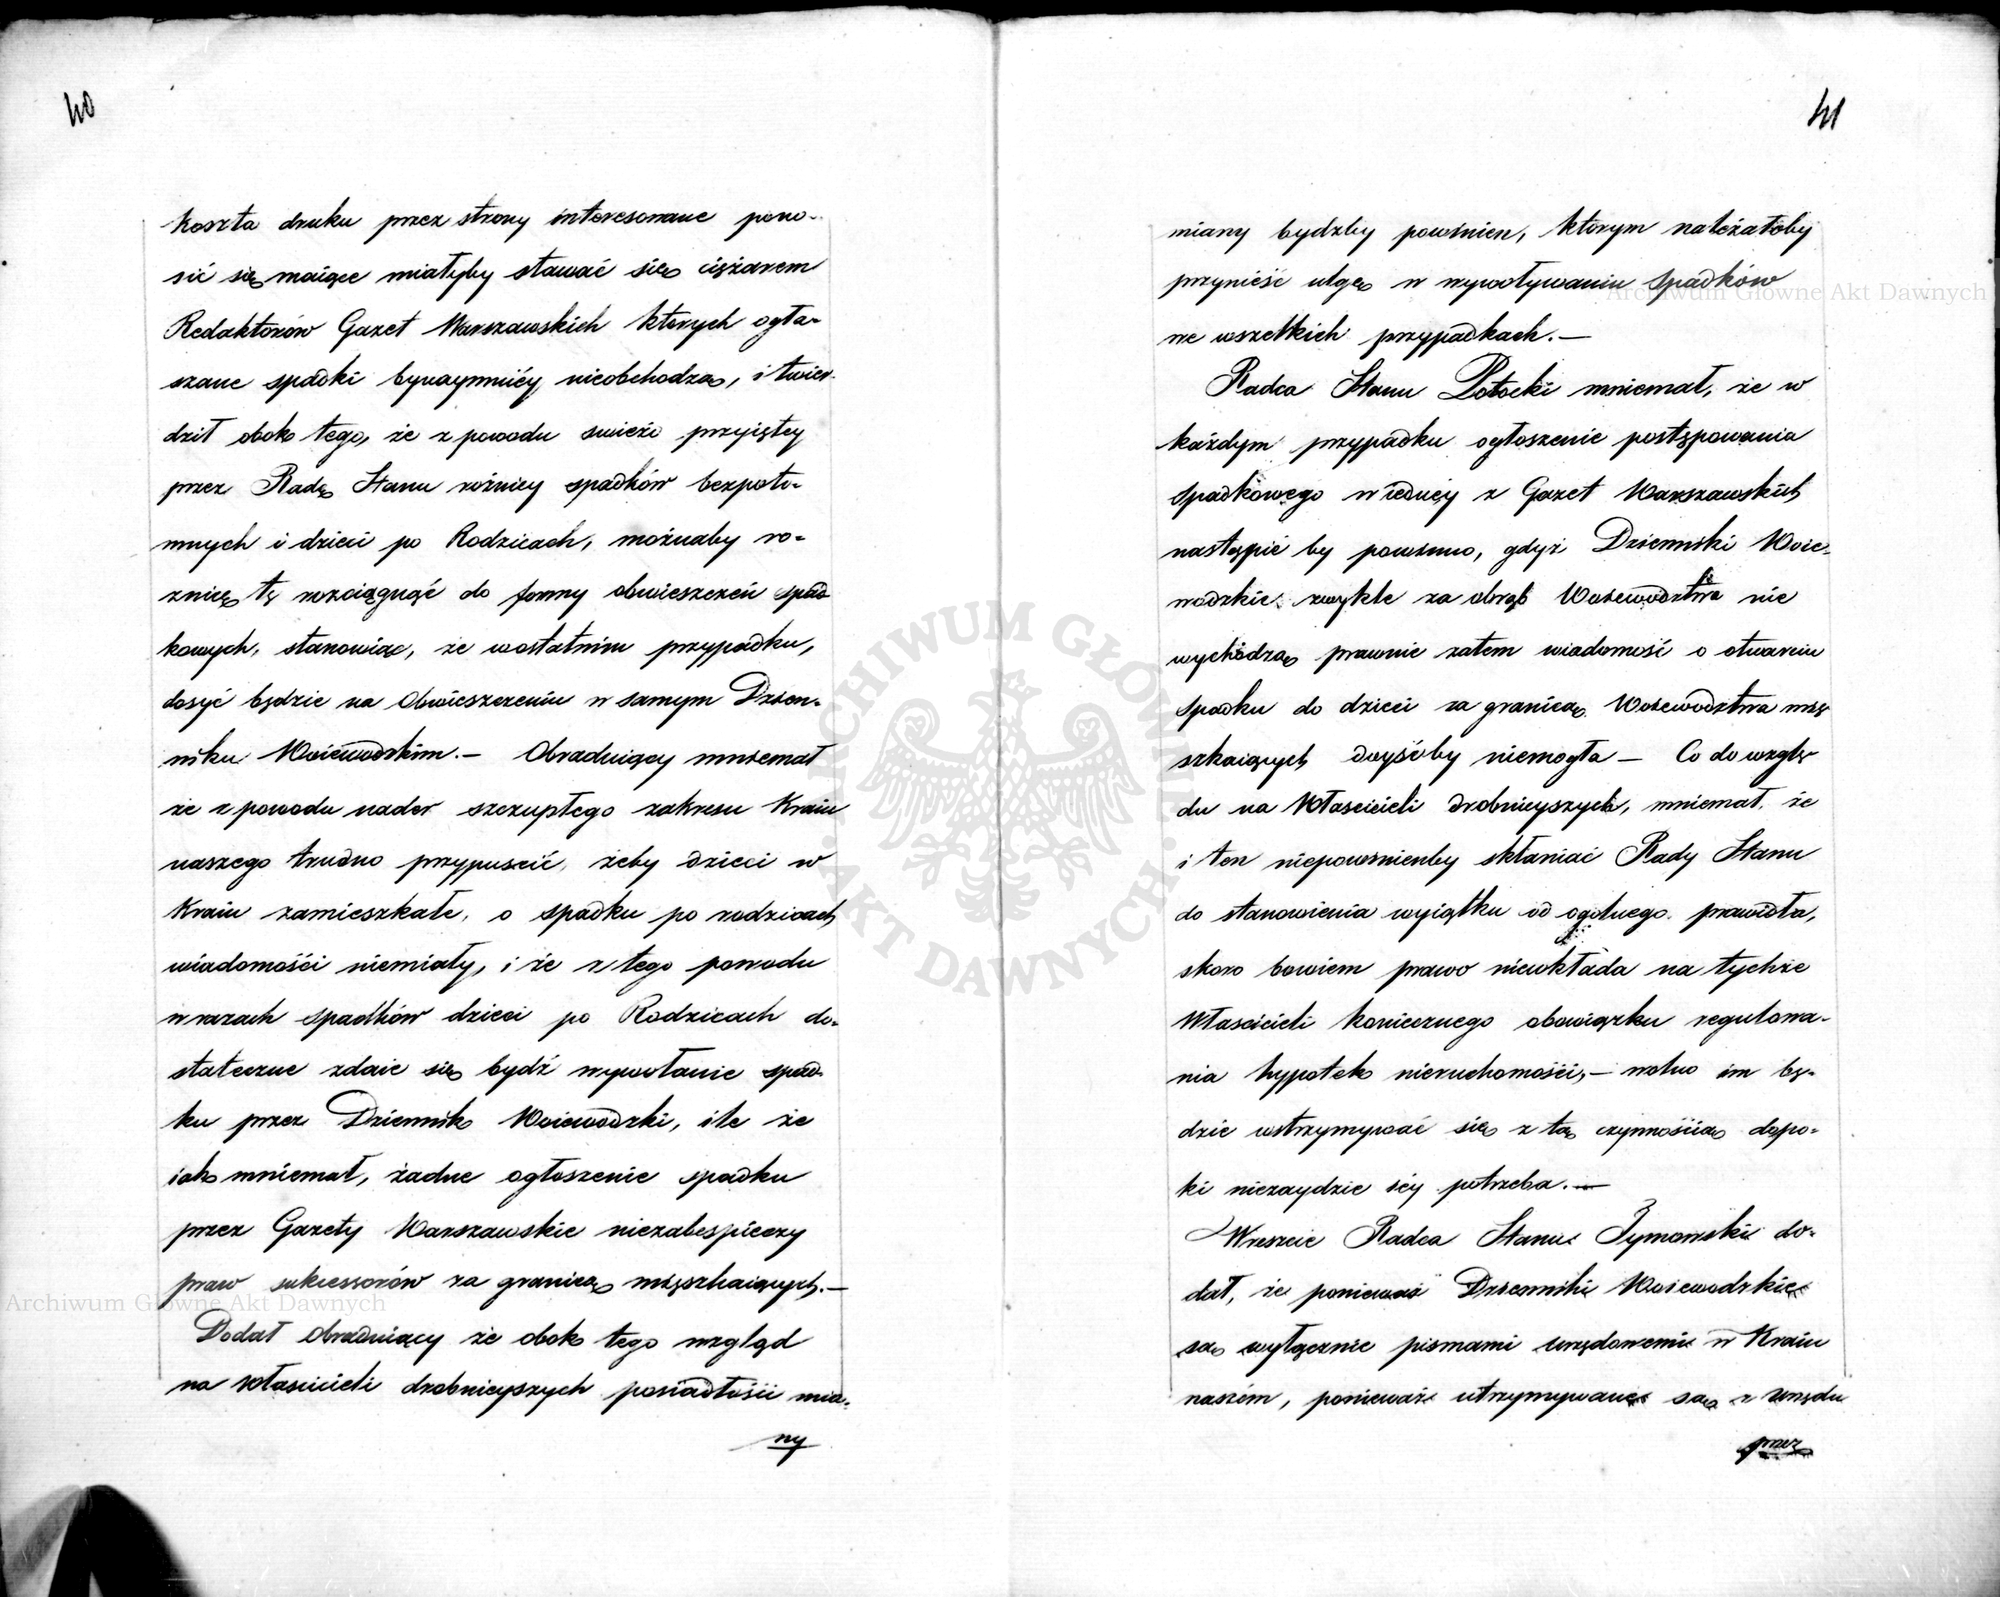 40
koszta druku przez strony interesowane pono-
sić się maiące miałyby stawać się ciężarem
Redaktorów Gazet Warszawskich których ogła-
szane spadki bynaymniéy nieobchodzą, i twier-
dził obok tego, że z powodu swieżo przyiętey
przez Radę Stanu rożnicy spadków bezpoto-
mnych i dzieci po Rodzicach, możnaby ro-
żnicę tę rozciągnąć do formy obwieszczeń spad
kowych, stanowiąc, że wostatnim przypadku,
dosyć będzie na Obwieszczeniu w samym Dzien-
niku Woiewodzkim. — Obraduiący mniemał
że z powodu nader szczupłego zakresu Kraiu
naszego trudno przypuscić, żeby dzieci w
Kraiu zamieszkałe, o spadku po rodzicach
wiadomości niemiały, i że z tego powodu
w razach spadków dzieci po Rodzicach do-
stateczne zdaie się bydź wywołanie spad-
ku przez Dziennik Woiewodzki, ile że
iak mniemał, żadne ogłoszenie spadku
przez Gazety Warszawskie niezabespieczy
praw sukcessorów za granicą mięszkaiących. —
Dodał Obraduiący że obok tego wzgląd
na właścicieli drobnieyszych posiadłości mia-
ny
41
miany bydźby powinien, którym należałoby
przynieść ulgę w wywoływaniu spadków
we wszelkich przypadkach. —
Radca Stanu Potocki mniemał, że w
każdym przypadku ogłoszenie postępowania
spadkowego w iednéy z Gazet Warszawskich
nastąpić by powinno, gdyż Dzienniki Woie-
wodzkie zwykle za obręb Woiewodztwa nie
wychodzą prawnie zatem wiadomość o otwarciu
spadku do dzieci za granicą Woiewodztwa mię
szkaiących doyśćby niemogła — Co do wzglę-
du na Właścicieli drobnieyszych, mniemał, że
i ten niepowinienby skłaniać Rady Stanu
do stanowienia wyiątku od ogólnego prawidła,
skoro bowiem prawo niewkłada na tychże
Właścicieli koniecznego obowiązku regulowa-
nia hypotek nieruchomości, — wolno im bę-
dzie wstrzymywać się z tą czynnością dopo-
ki niezaydzie iéy potrzeba. —
Wreszcie Radca Stanu Tymowski do-
dał, że ponieważ Dzienniki Woiewodzkie
są wyłącznie pismami urzędowemi w Kraiu
naszém, ponieważ utrzymywane są z urzędu
przez
Archiwum Główne Akt Dawnych
Archiwum Główne Akt Dawnych
ARCHIWUM GŁÓWNE AKT DAWNYCH